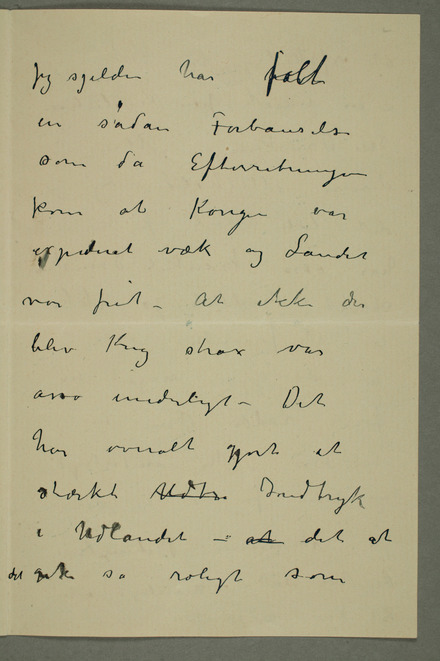 jeg sjelden har følt
en sådan Forbauselse
som da Efterretningen
kom at Kongen var
expederet væk og Landet
var frit – At ikke der
blev Krig strax var
også underligt – Det
har overalt gjort et
stærkt Udtr Indtryk
i Udlandet – at det at
det gik så roligt som